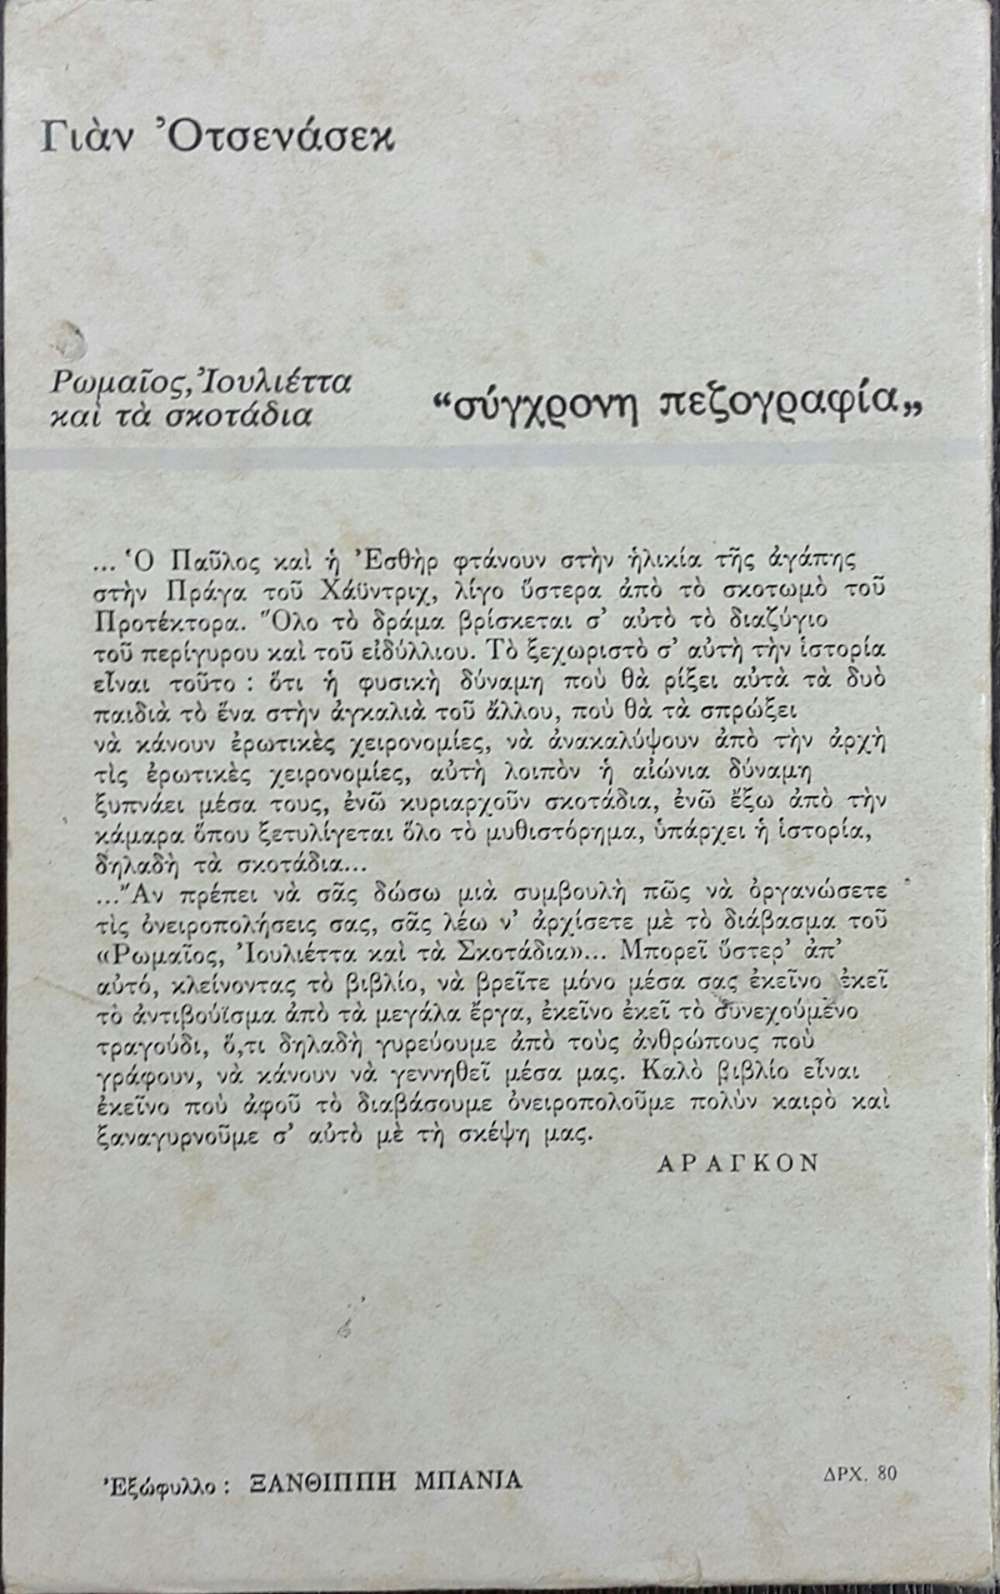 Γιὰν Ὀτσενάσεκ
Ρωμαῖος, Ἰουλιέττα
καὶ τὰ σκοτάδια
“σύγχρονη πεζογραφία„
... Ὁ Παῦλος καὶ ἡ Ἐσθὴρ φτάνουν στὴν ἡλικία τῆς ἀγάπης
στὴν Πράγα τοῦ Χάϋντριχ, λίγο ὕστερα ἀπὸ τὸ σκοτωμὸ τοῦ
Προτέκτορα. Ὅλο τὸ δράμα βρίσκεται σ’ αὐτὸ τὸ διαζύγιο
τοῦ περίγυρου καὶ τοῦ εἰδύλλιου. Τὸ ξεχωριστὸ σ’ αὐτὴ τὴν ἱστορία
εἶναι τοῦτο : ὅτι ἡ φυσικὴ δύναμη ποὺ θὰ ρίξει αὐτὰ τὰ δυὸ
παιδιὰ τὸ ἕνα στὴν ἀγκαλιὰ τοῦ ἄλλου, ποὺ θὰ τὰ σπρώξει
νὰ κάνουν ἐρωτικὲς χειρονομίες, νὰ ἀνακαλύψουν ἀπὸ τὴν ἀρχὴ
τὶς ἐρωτικὲς χειρονομίες, αὐτὴ λοιπὸν ἡ αἰώνια δύναμη
ξυπνάει μέσα τους, ἐνῶ κυριαρχοῦν σκοτάδια, ἐνῶ ἔξω ἀπὸ τὴν
κάμαρα ὅπου ξετυλίγεται ὅλο τὸ μυθιστόρημα, ὑπάρχει ἡ ἱστορία,
δηλαδὴ τὰ σκοτάδια...
...Ἂν πρέπει νὰ σᾶς δώσω μιὰ συμβουλὴ πῶς νὰ ὀργανώσετε
τὶς ὀνειροπολήσεις σας, σᾶς λέω ν’ ἀρχίσετε μὲ τὸ διάβασμα τοῦ
«Ρωμαῖος, Ἰουλιέττα καὶ τὰ Σκοτάδια»... Μπορεῖ ὕστερ’ ἀπ’
αὐτό, κλείνοντας τὸ βιβλίο, νὰ βρεῖτε μόνο μέσα σας ἐκεῖνο ἐκεῖ
τὸ ἀντιβούϊσμα ἀπὸ τὰ μεγάλα ἔργα, ἐκεῖνο ἐκεῖ τὸ συνεχούμενο
τραγούδι, ὅ,τι δηλαδὴ γυρεύουμε ἀπὸ τοὺς ἀνθρώπους ποὺ
γράφουν, νὰ κάνουν νὰ γεννηθεῖ μέσα μας. Καλὸ βιβλίο εἶναι
ἐκεῖνο ποὺ ἀφοῦ τὸ διαβάσουμε ὀνειροπολοῦμε πολὺν καιρὸ καὶ
ξαναγυρνοῦμε σ’ αὐτὸ μὲ τὴ σκέψη μας.
ΑΡΑΓΚΟΝ
Ἐξώφυλλο : ΞΑΝΘΙΠΠΗ ΜΠΑΝΙΑ
ΔΡΧ. 80